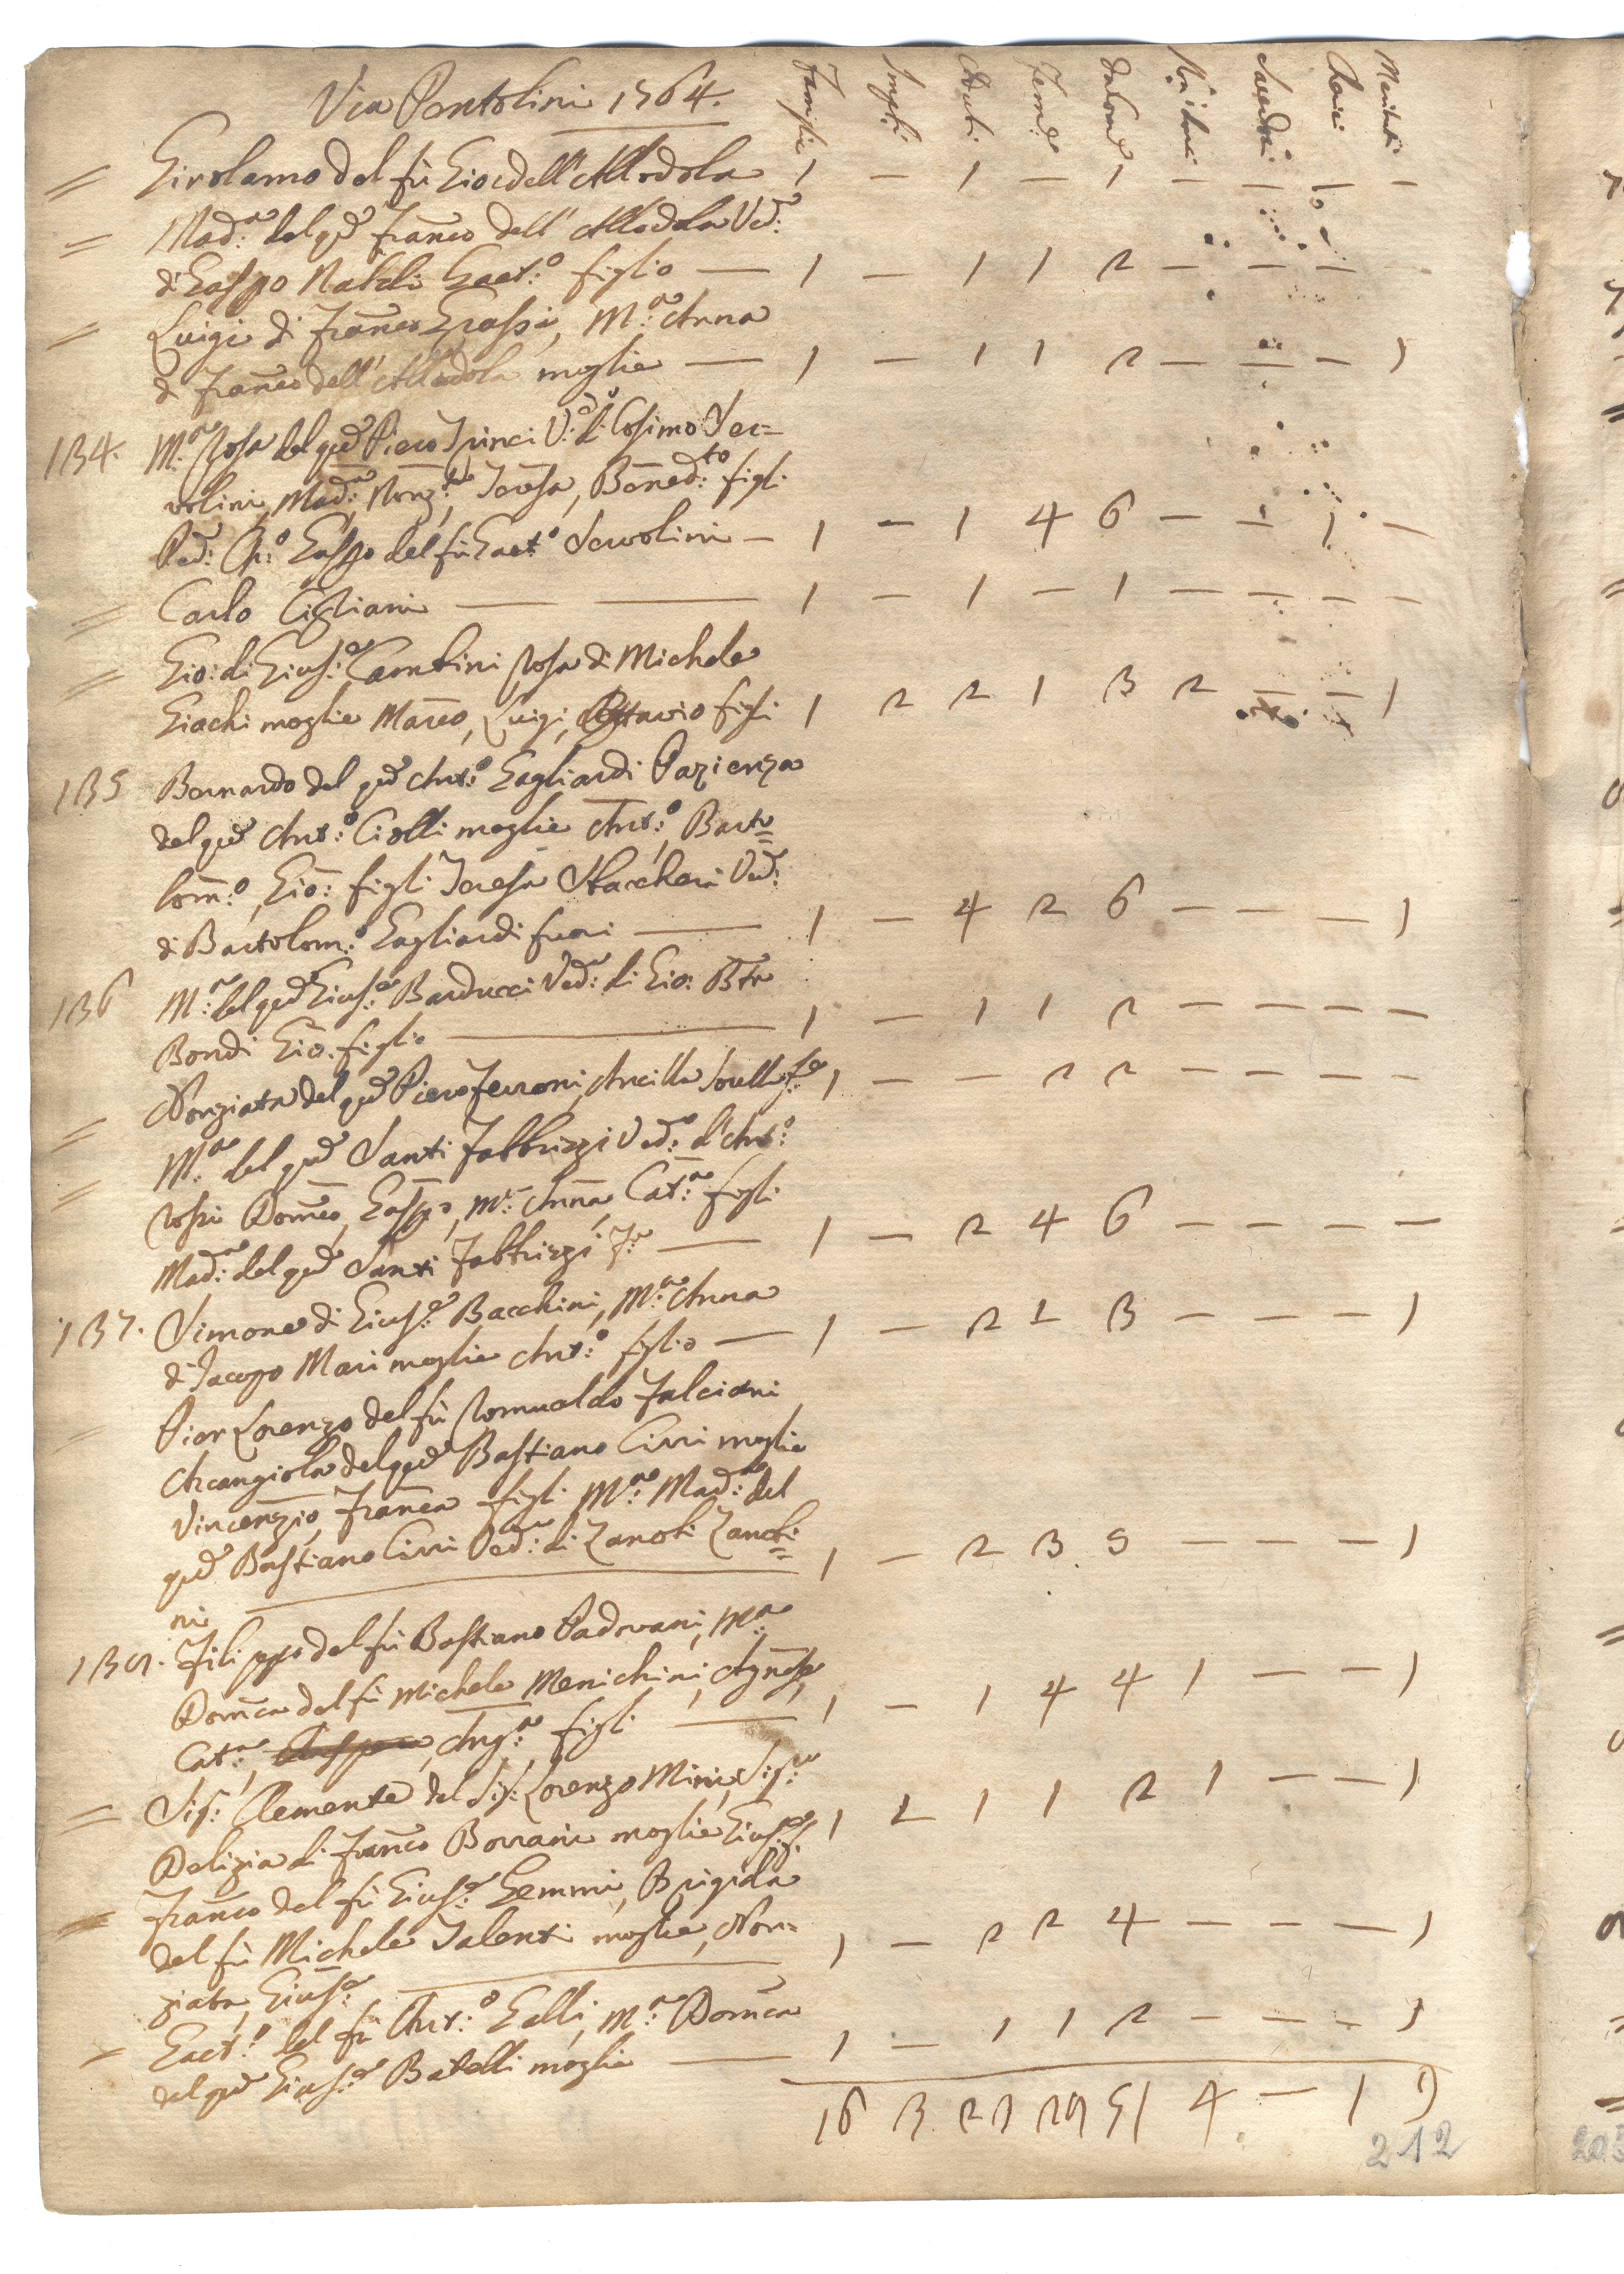 Via Pantolini 1764.
Famiglie Impuberi Aduti Femē Dalomē Sacerdoti Cherici Maritati
= Girolamo del fù Gio: dell'Allodola 1 — 1 — 1 — — — —
= Mad:ª del qm̄ Franco dell'Allodola Ved:ª
di Gaspo Natali Gaet:º figlio — 1 — 1 1 2 — — —
= Luigi di Franco Grassi, M:ª Anna
di Franco dell'Allodola moglie — 1 — 1 1 2 — — — 1
134. M:ª Rosa del qm̄ Piero Princi V:ª di Cosimo Ser=
volini, Mad:ª, Nonz:ª, Teresa, Bened:to figli
Red: Ch:º Gaspo del fù Gaet:º Servolini — 1 — 1 4 6 — — 1 —
= Carlo Cigliani — — 1 — 1 — 1 — — — —
= Gio: di Gius:e Cambini Rosa di Michele
Giachi moglie Marco, Luigi, Ottavio figli 1 2 2 1 3 2 — — 1
135 Bernardo del qm̄ Ant:º Gagliardi Pazienza
del qm̄ Ant:º Ciolli moglie Ant:º, Barto=
lom:º, Gio: figli Teresa Staccheri Ved:
di Bartolom:º Gagliardi fuori — 1 — 4 2 6 — — — 1
136 M:ª del qm̄ Gius:e Barducci Ved:ª di Gio: Bta
Bondi Gio: figlio — 1 — 1 1 2 — — — —
= Nonziata del qm̄ Piero Ferroni, Ancilla Sorella f:e 1 — — 2 2 — — — —
= M:ª del qm̄ Santi Fabbrizzi Ved:ª d'Ant:º
Rossi Domco, Gaspo, M:ª Anna, Cat:ª figli
Mad:ª del qm̄ Santi Fabbrizzi F:ª — 1 — 2 4 6 — — — —
137. Simone di Gius:e Bacchini, M:ª Anna
di Jacopo Mari moglie Ant:º figlio — 1 — 2 1 3 — — — 1
= Pier Lorenzo del fù Romualdo Falciani
Arcangiola del qm̄ Bastiano Cirri moglie
Vincenzio, Franca figli M:ª Mad:ª del
qm̄ Bastiano Cirri Ved:ª di Zanobi Zanobi=
ni — 1 — 2 3 5 — — — 1
139. Filippo del fù Bastiano Padovani, M:ª
Domca del fù Michele Menichini, Agnese,
Cat:ª, Ang:ª figli — 1 — 1 4 4 1 — — 1
= Sig: Clemente del Sig: Lorenzo Mini, Sig:ra
Delizia di Franco Borrani moglie Gius:e f. 1 1 1 1 2 1 — — 1
= Franco del fù Gius:e Gemmi, Brigida
del fù Michele Talenti moglie, Non=
ziata, Gius:e — 1 — 2 2 4 — — — 1
= Gaet:º del fù Ant:º Galli, M:ª Domca
del qm̄ Gius:e Batelli moglie — 1 — 1 1 2 — — — 1
16 3 23 29 51 4 — 1 9
212